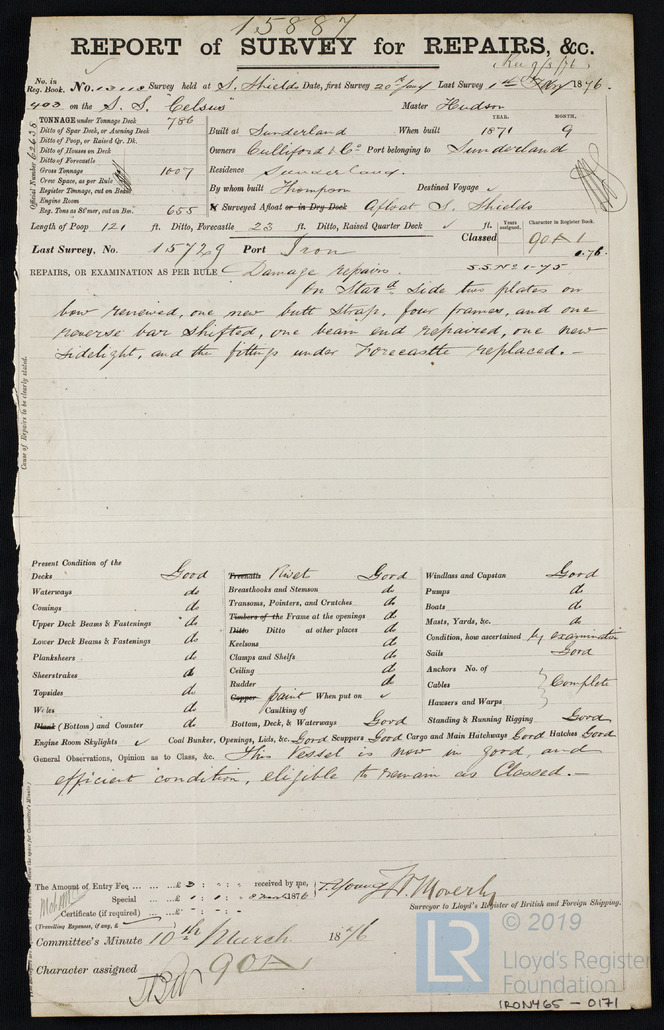 15887
REPORT of SURVEY for REPAIRS, &c.
No. in Reg. Book. No. Survey held at S. Shields Date, first Survey 20th Jany Last Survey 1st 1876.
403 on the S.S. "Celsus" Master Hudson
TONNAGE under Tonnage Deck 786
Ditto of Spar Deck, or Awning Deck
Ditto of Poop, or Raised Qr. Dk.
Ditto of House on Deck
Ditto of Forecastle
Gross Tonnage 1007
Crew Space, as per Rule
Register Tonnage, cut on Beam
Engine Room
Reg. Tons as St'mer, cut on Bm. 655
Official Number 62638
YEAR. MONTH.
Built at Sunderland When built 1871 9
Owners Culliford & Co Port belonging to Sunderland
Residence Sunderland.
By whom built Thompson Destined Voyage ✓
Surveyed Afloat or in Dry Dock Afloat S. Shields
Length of Poop 121 ft. Ditto, Forecastle 23 ft. Ditto, Raised Quarter Deck ✓ ft.
Classed Years assigned. Character in Register Book. 90A1
Last Survey, No. 15729 Port Iron 1.76.
REPAIRS, OR EXAMINATION AS PER RULE Damage repairs. S.S. No 1-75
On Stard. side two plates on
bow renewed, one new butt strap, four frames, and one
reverse bar shifted, one beam end repaired, one new
sidelight, and the fittings under Forecastle replaced. —
Cause of Repairs to be clearly stated.
Present Condition of the
Decks Good
Waterways do
Comings do
Upper Deck Beams & Fastenings do
Lower Deck Beams & Fastenings do
Planksheers do
Sheerstrakes do
Topsides do
Wales do
Plank (Bottom) and Counter do
Engine Room Skylights ✓
Treenails Rivet Good
Breasthooks and Stemson do
Transoms, Pointers, and Crutches do
Timbers of the Frame at the openings do
Ditto Ditto at other places do
Keelsons do
Clamps and Shelfs do
Ceiling do
Rudder do
Copper paint When put on ✓
Caulking of
Bottom, Deck, & Waterways Good
Windlass and Capstan Good
Pumps do
Boats do
Masts, Yards, &c. do
Condition, how ascertained by examination
Sails Good
Anchors No. of
Cables Complete
Hawsers and Warps
Standing & Running Rigging Good
Coal Bunker, Openings, Lids, &c. Good Scuppers Good Cargo and Main Hatchways Good Hatches Good
General Observations, Opinion as to Class, &c. This Vessel is now in good, and
efficient condition, eligible to remain as Classed. —
The Amount of Entry Fee £ : : received by me,
Special £ 1 : 1 : 1876
Certificate (if required) £ : :
(Travelling Expenses, if any, £ )
T. Young W. Moverly
Surveyor to Lloyd's Register of British and Foreign Shipping.
Committee's Minute 10th March 1876
Character assigned 90A1
© 2019
LR
Lloyd's Register
Foundation
IRON465 - 0171